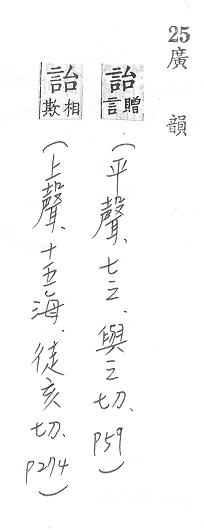 25廣韻
詒贈言(平聲、七之、與之切、P59)
詒相欺(上聲、十五海、徒亥切、P274)